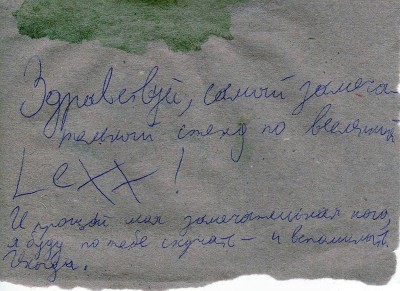 Здравствуй, самый замеча-
тельный стенд по вселенной
Lexx!
И прощай моя замечательная
я буду по тебе скучать – и вспоминать
Иногда.